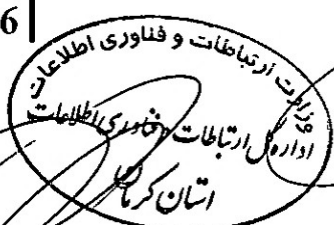 6
وزارت ارتباطات و فناوری اطلاعات
اداره کل ارتباطات و فناوری اطلاعات
استان کرمان